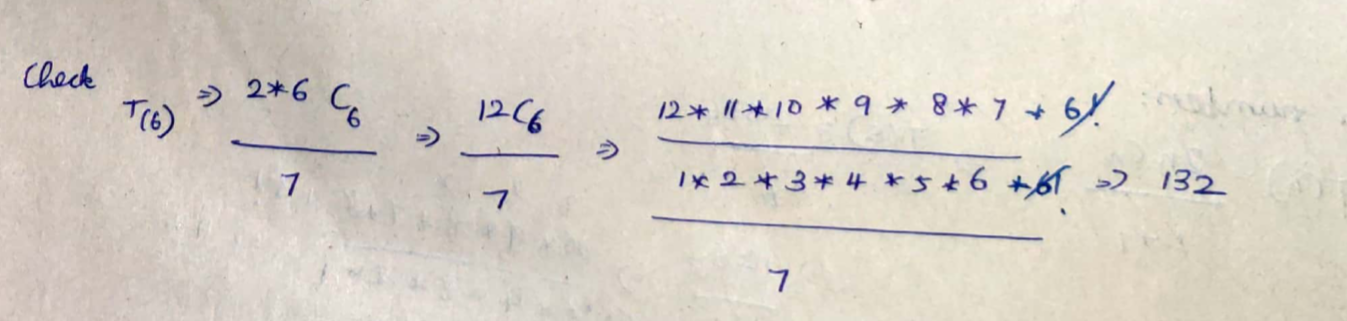 Check T(6) ⇒ 2*6 C6 / 7 ⇒ 12C6 / 7 ⇒ 12* 11*10 * 9 * 8* 7 * 6! / 1* 2 * 3* 4 * 5 * 6 * 6! / 7 ⇒ 132